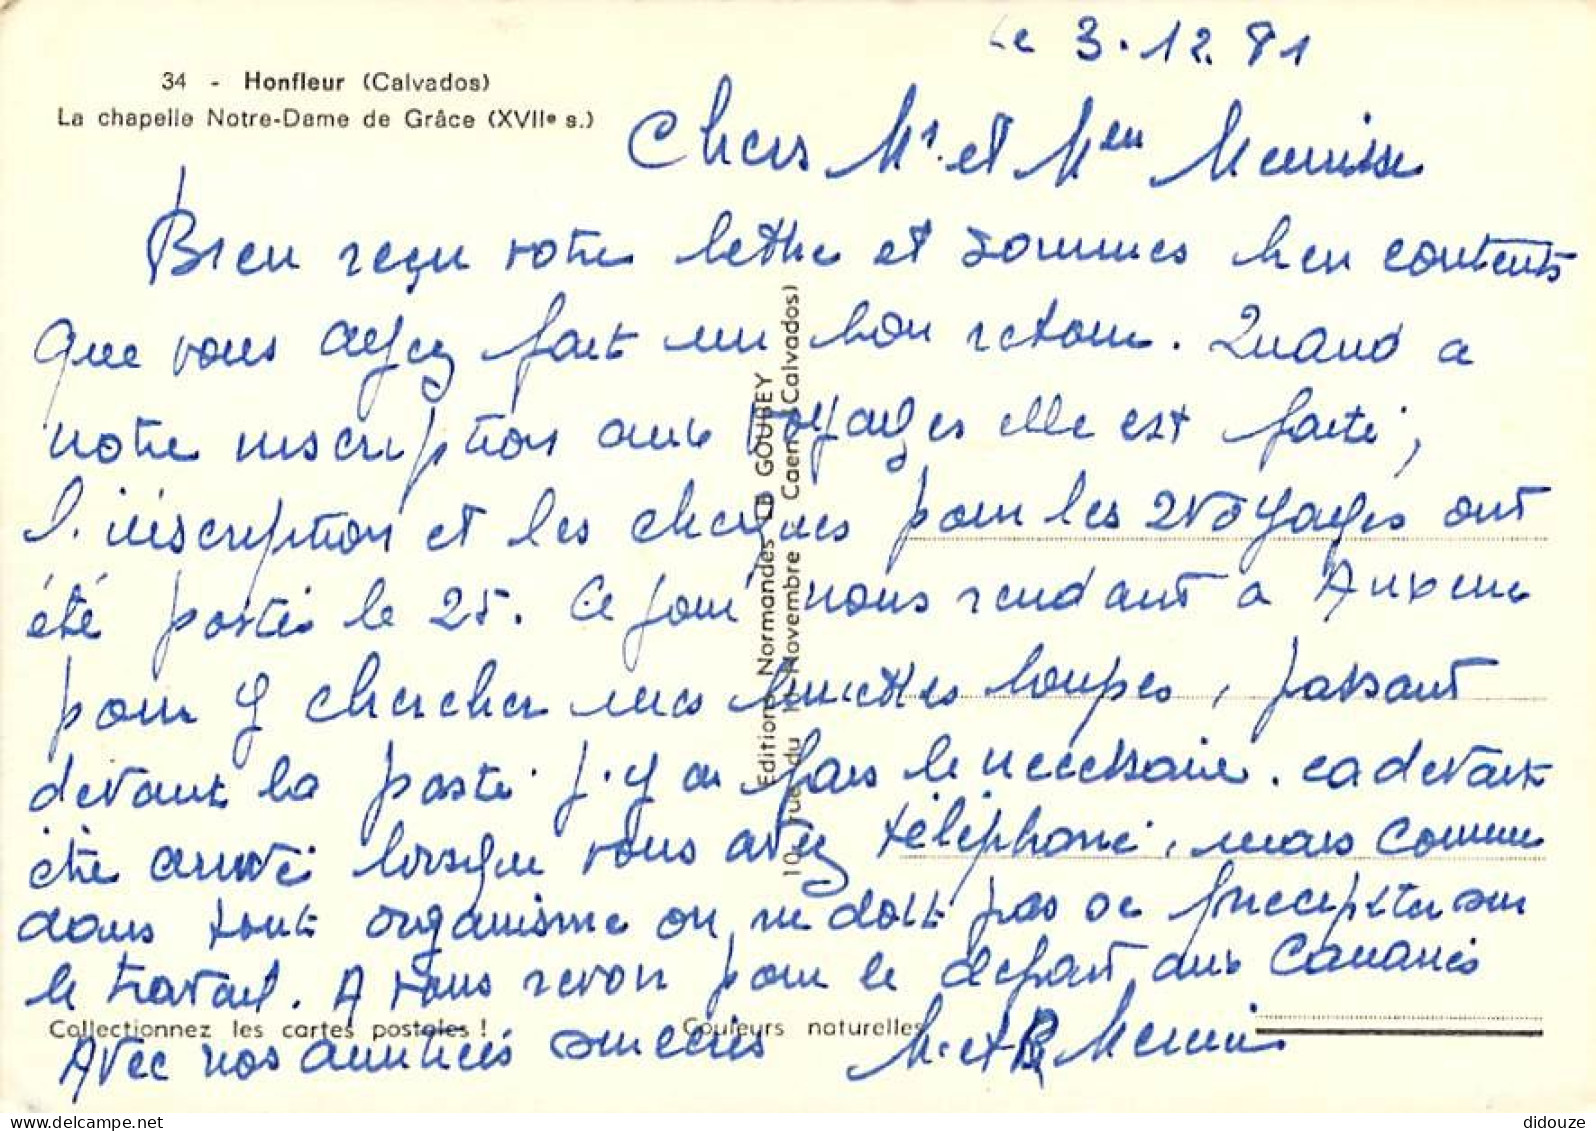 Le 3.12.81
34 - Honfleur (Calvados)
La chapelle Notre-Dame de Grâce (XVIIe s.)
Chers Mr. et Men
Bien reçu votre lettre et sommes bien contents
que vous ayez fait un bon retour. Quand a
notre inscription aux voyages elle est faite,
l'inscription et les cheques pour les 2 voyages ont
été postés le 25. Ce jour nous rendant a
pour y chercher mes lunettes loupes, passant
devant la poste j'y ai fais le nécessaire. ca devait
être arrivé lorsque vous avez téléphoné, mais comme
dans tout organisme on ne doit pas se precipiter sur
le travail. A vous revoir pour le départ aux Canaries
Avec nos amitiés sincères M. et
Editions Normandes LE GOUBEY
10, rue du 11-Novembre Caen (Calvados)
Collectionnez les cartes postales !
Couleurs naturelles
didouze